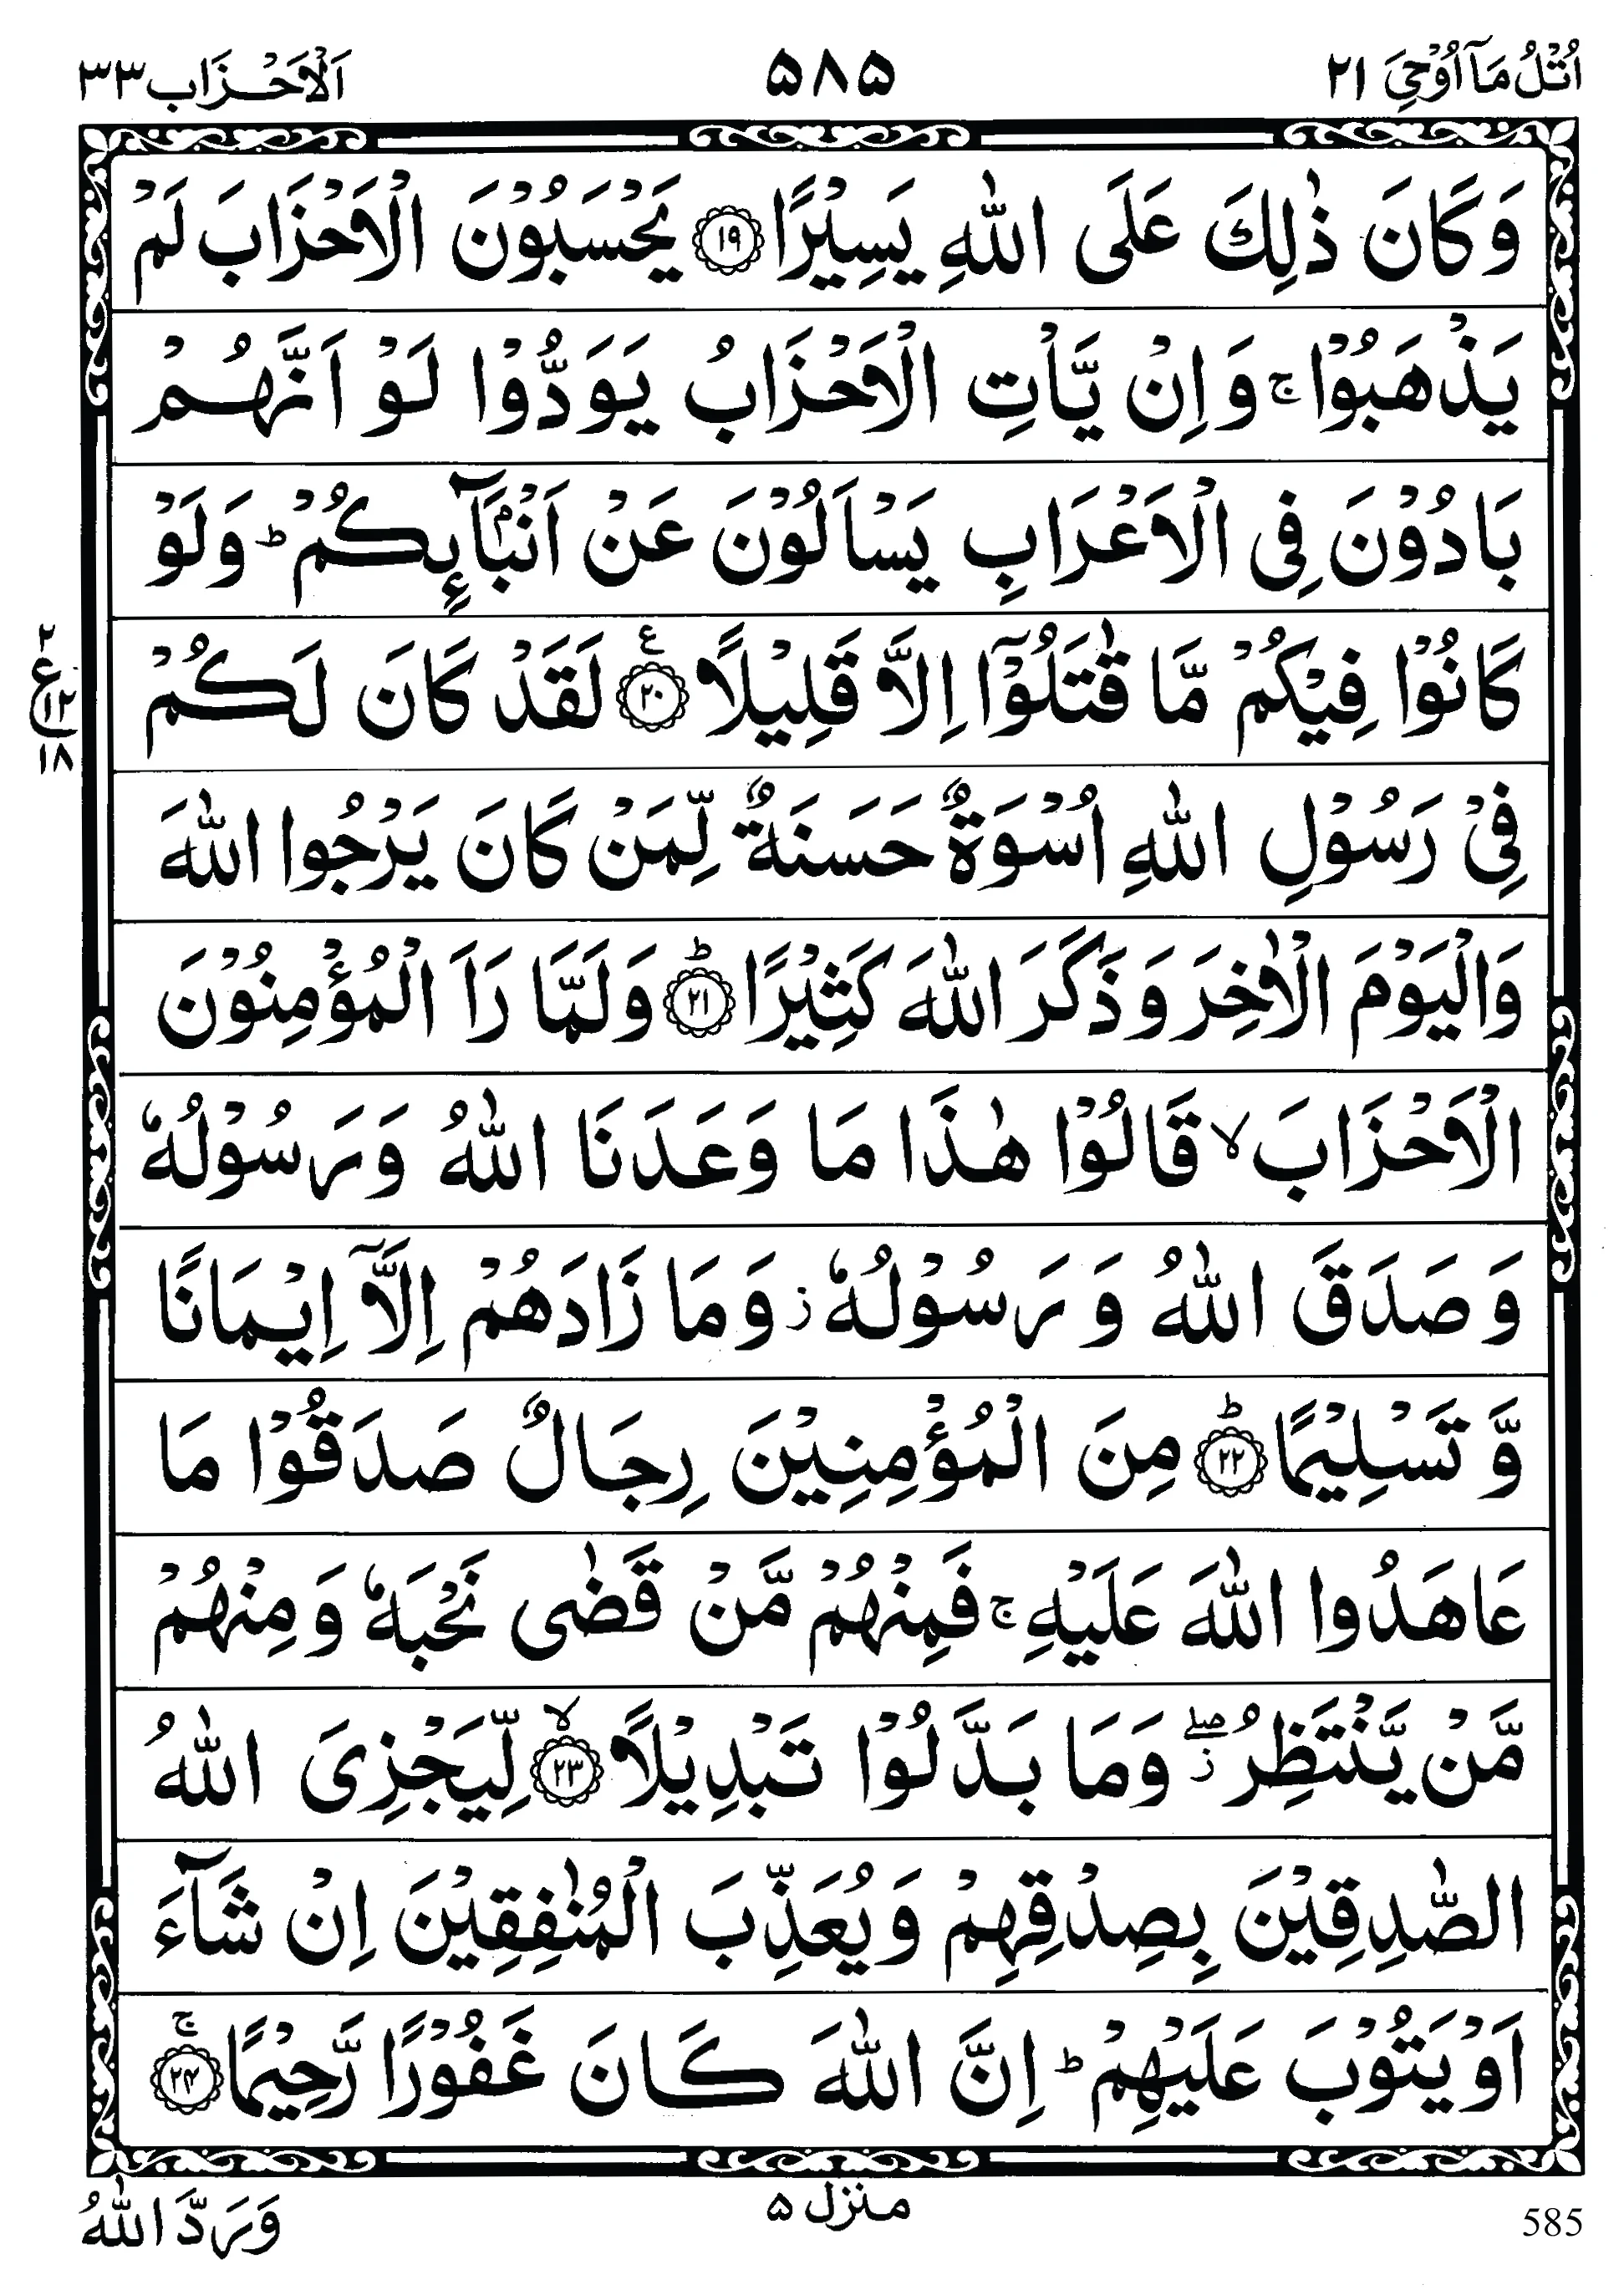 اُتْلُ مَاۤ اُوْحِيَ ٢١ ۵۸۵ اَلْاَحْزَاب ٣٣
وَكَانَ ذٰلِكَ عَلَى اللّٰهِ يَسِيْرًا ﴿١٩﴾ يَحْسَبُوْنَ الْاَحْزَابَ لَمْ
يَذْهَبُوْا ۚ وَاِنْ يَّاْتِ الْاَحْزَابُ يَوَدُّوْا لَوْ اَنَّهُمْ
بَادُوْنَ فِى الْاَعْرَابِ يَسْاَلُوْنَ عَنْ اَنْۢبَآىِٕكُمْ ؕ وَلَوْ
كَانُوْا فِيْكُمْ مَّا قٰتَلُوْۤا اِلَّا قَلِيْلًا ﴿٢٠﴾ ع لَقَدْ كَانَ لَكُمْ
٢
ع
١٢
١٨
فِيْ رَسُوْلِ اللّٰهِ اُسْوَةٌ حَسَنَةٌ لِّمَنْ كَانَ يَرْجُوا اللّٰهَ
وَالْيَوْمَ الْاٰخِرَ وَذَكَرَ اللّٰهَ كَثِيْرًا ﴿٢١﴾ؕ وَلَمَّا رَاَ الْمُؤْمِنُوْنَ
الْاَحْزَابَ ۙ قَالُوْا هٰذَا مَا وَعَدَنَا اللّٰهُ وَرَسُوْلُهٗ
وَصَدَقَ اللّٰهُ وَرَسُوْلُهٗ ز وَمَا زَادَهُمْ اِلَّاۤ اِيْمَانًا
وَّتَسْلِيْمًا ﴿٢٢﴾ؕ مِنَ الْمُؤْمِنِيْنَ رِجَالٌ صَدَقُوْا مَا
عَاهَدُوا اللّٰهَ عَلَيْهِ ۚ فَمِنْهُمْ مَّنْ قَضٰى نَحْبَهٗ وَمِنْهُمْ
مَّنْ يَّنْتَظِرُ ۖز وَمَا بَدَّلُوْا تَبْدِيْلًا ﴿٢٣﴾ۙ لِّيَجْزِىَ اللّٰهُ
الصّٰدِقِيْنَ بِصِدْقِهِمْ وَيُعَذِّبَ الْمُنٰفِقِيْنَ اِنْ شَآءَ
اَوْ يَتُوْبَ عَلَيْهِمْ ؕ اِنَّ اللّٰهَ كَانَ غَفُوْرًا رَّحِيْمًا ﴿٢٤﴾ۚ
585 منزل ۵ وَرَدَّ اللّٰهُ